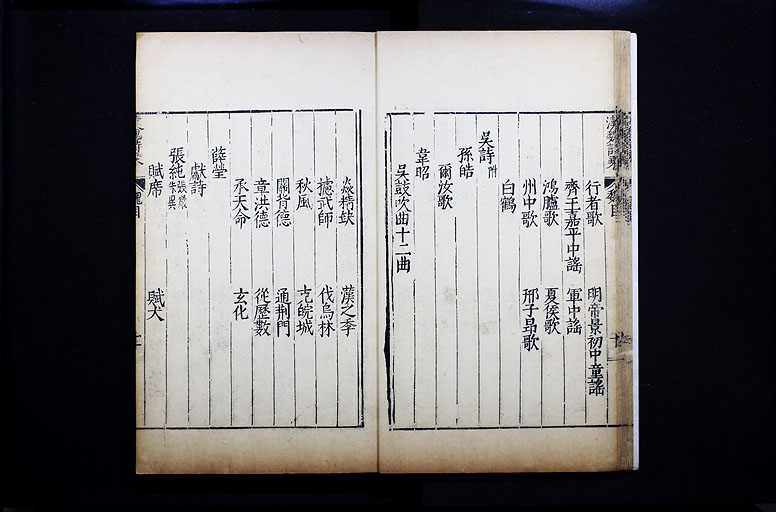 漢魏詩乘 魏目 十
行者歌 明帝景初中童謠
齊王嘉平中謠 軍中謠
鴻臚歌 夏侯歌
州中歌 邢子昂歌
白鶴
吳詩附
孫皓
爾汝歌
韋昭
吳鼓吹曲十二曲
炎精缺 漢之季
攄武師 伐烏林
秋風 克皖城
關背德 通荊門
章洪德 從歷數
承天命 玄化
薛瑩
獻詩
張純張儼朱異
賦席 賦犬
魏目 十一